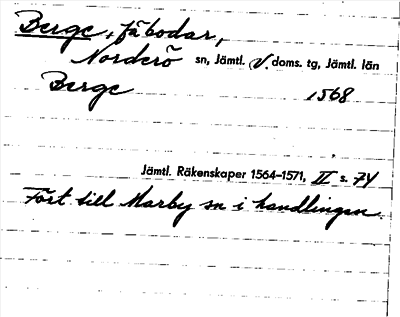 Berge, fäbodar,
Norderö sn, Jämtl. V. doms. tg, Jämtl. län
Berge 1568
Jämtl. Räkenskaper 1564–1571, II s. 74
Fört till Marby sn i handlingen.